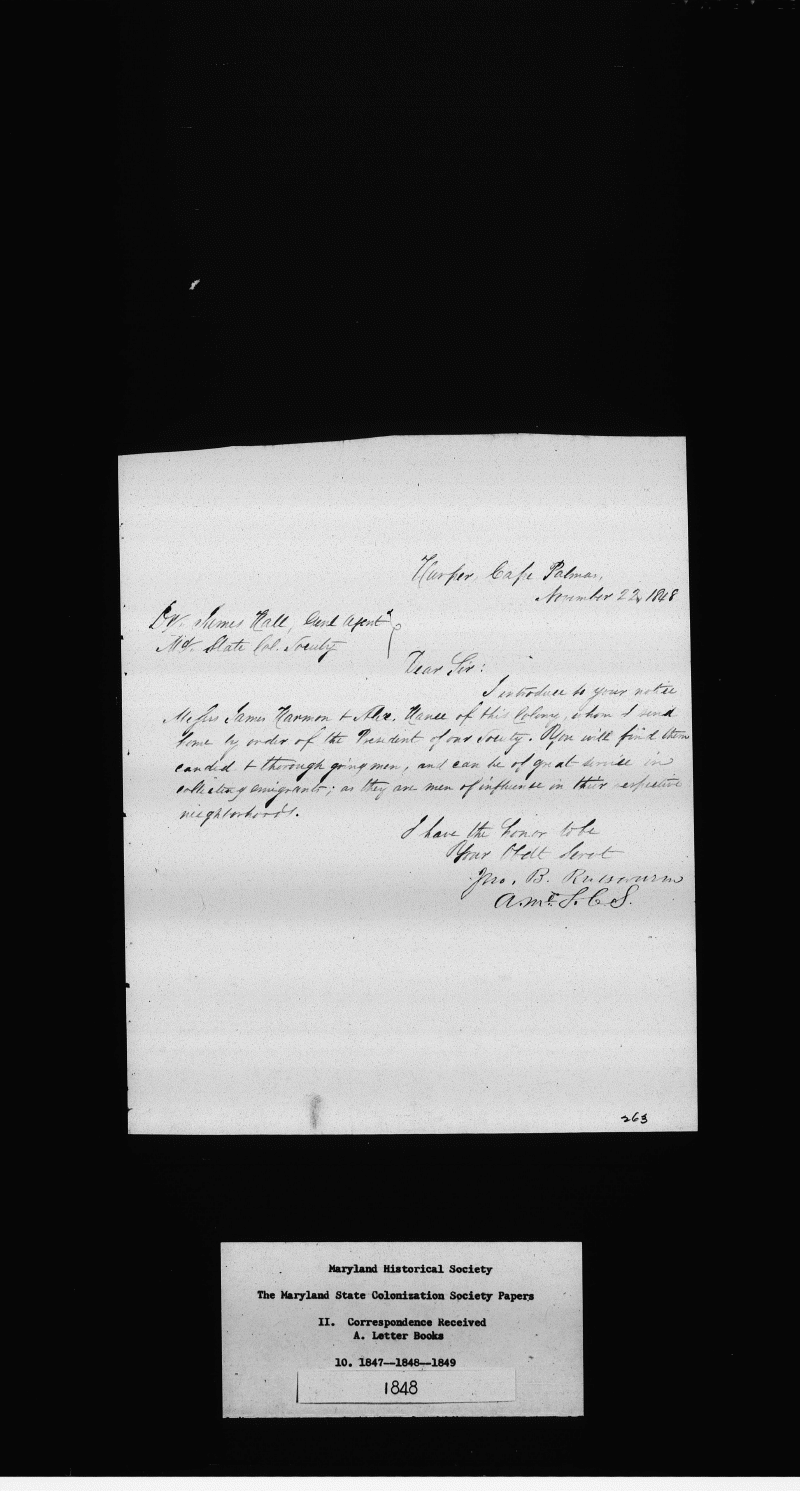 Harper, Cape Palmas,
November 22, 1848
Dr. James Hall, Genl Agent
Md. State Col. Society
Dear Sir:
I introduce to your notice
Messrs James Harmon & Alex. Hance of this Colony, whom I send
home by order of the President of our Society. You will find them
candid & thorough going men, and can be of great service in
collecting emigrants; as they are men of influence in their respective
nieghborhoods.
I have the honor to be
Your Obdt Servt
Jno. B. Russwurm
A. Md. S. C. S.
263
Maryland Historical Society
The Maryland State Colonization Society Papers
II. Correspondence Received
A. Letter Books
10. 1847--1848--1849
1848